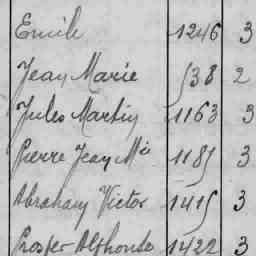 Emile 1246 3
Jean Marie 538 2
Jules Martin 1163 3
Pierre Jean Mie 1185 3
Abraham Victor 1415 3
Prosper Alphonse 1422 3